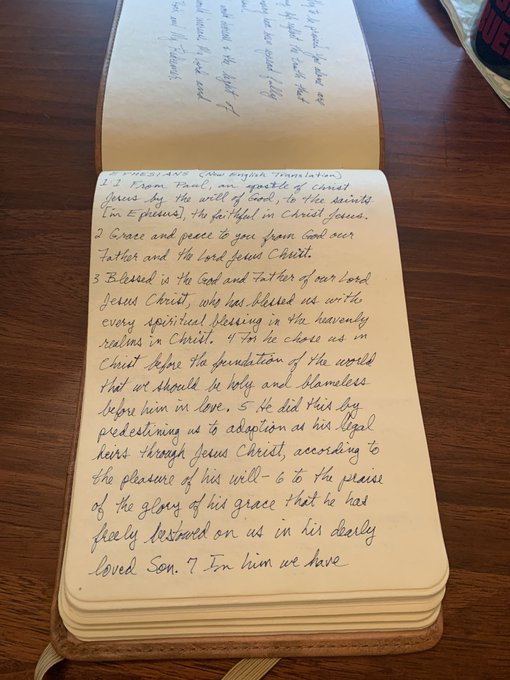 EPHESIANS (New English Translation)
1 1 From Paul, an apostle of Christ
Jesus by the will of God, to the saints
[in Ephesus], the faithful in Christ Jesus.
2 Grace and peace to you from God our
Father and the Lord Jesus Christ.
3 Blessed is the God and Father of our Lord
Jesus Christ, who has blessed us with
every spiritual blessing in the heavenly
realms in Christ. 4 For he chose us in
Christ before the foundation of the world
that we should be holy and blameless
before him in love. 5 He did this by
predestining us to adoption as his legal
heirs through Jesus Christ, according to
the pleasure of his will - 6 to the praise
of the glory of his grace that he has
freely bestowed on us in his dearly
loved Son. 7 In him we have